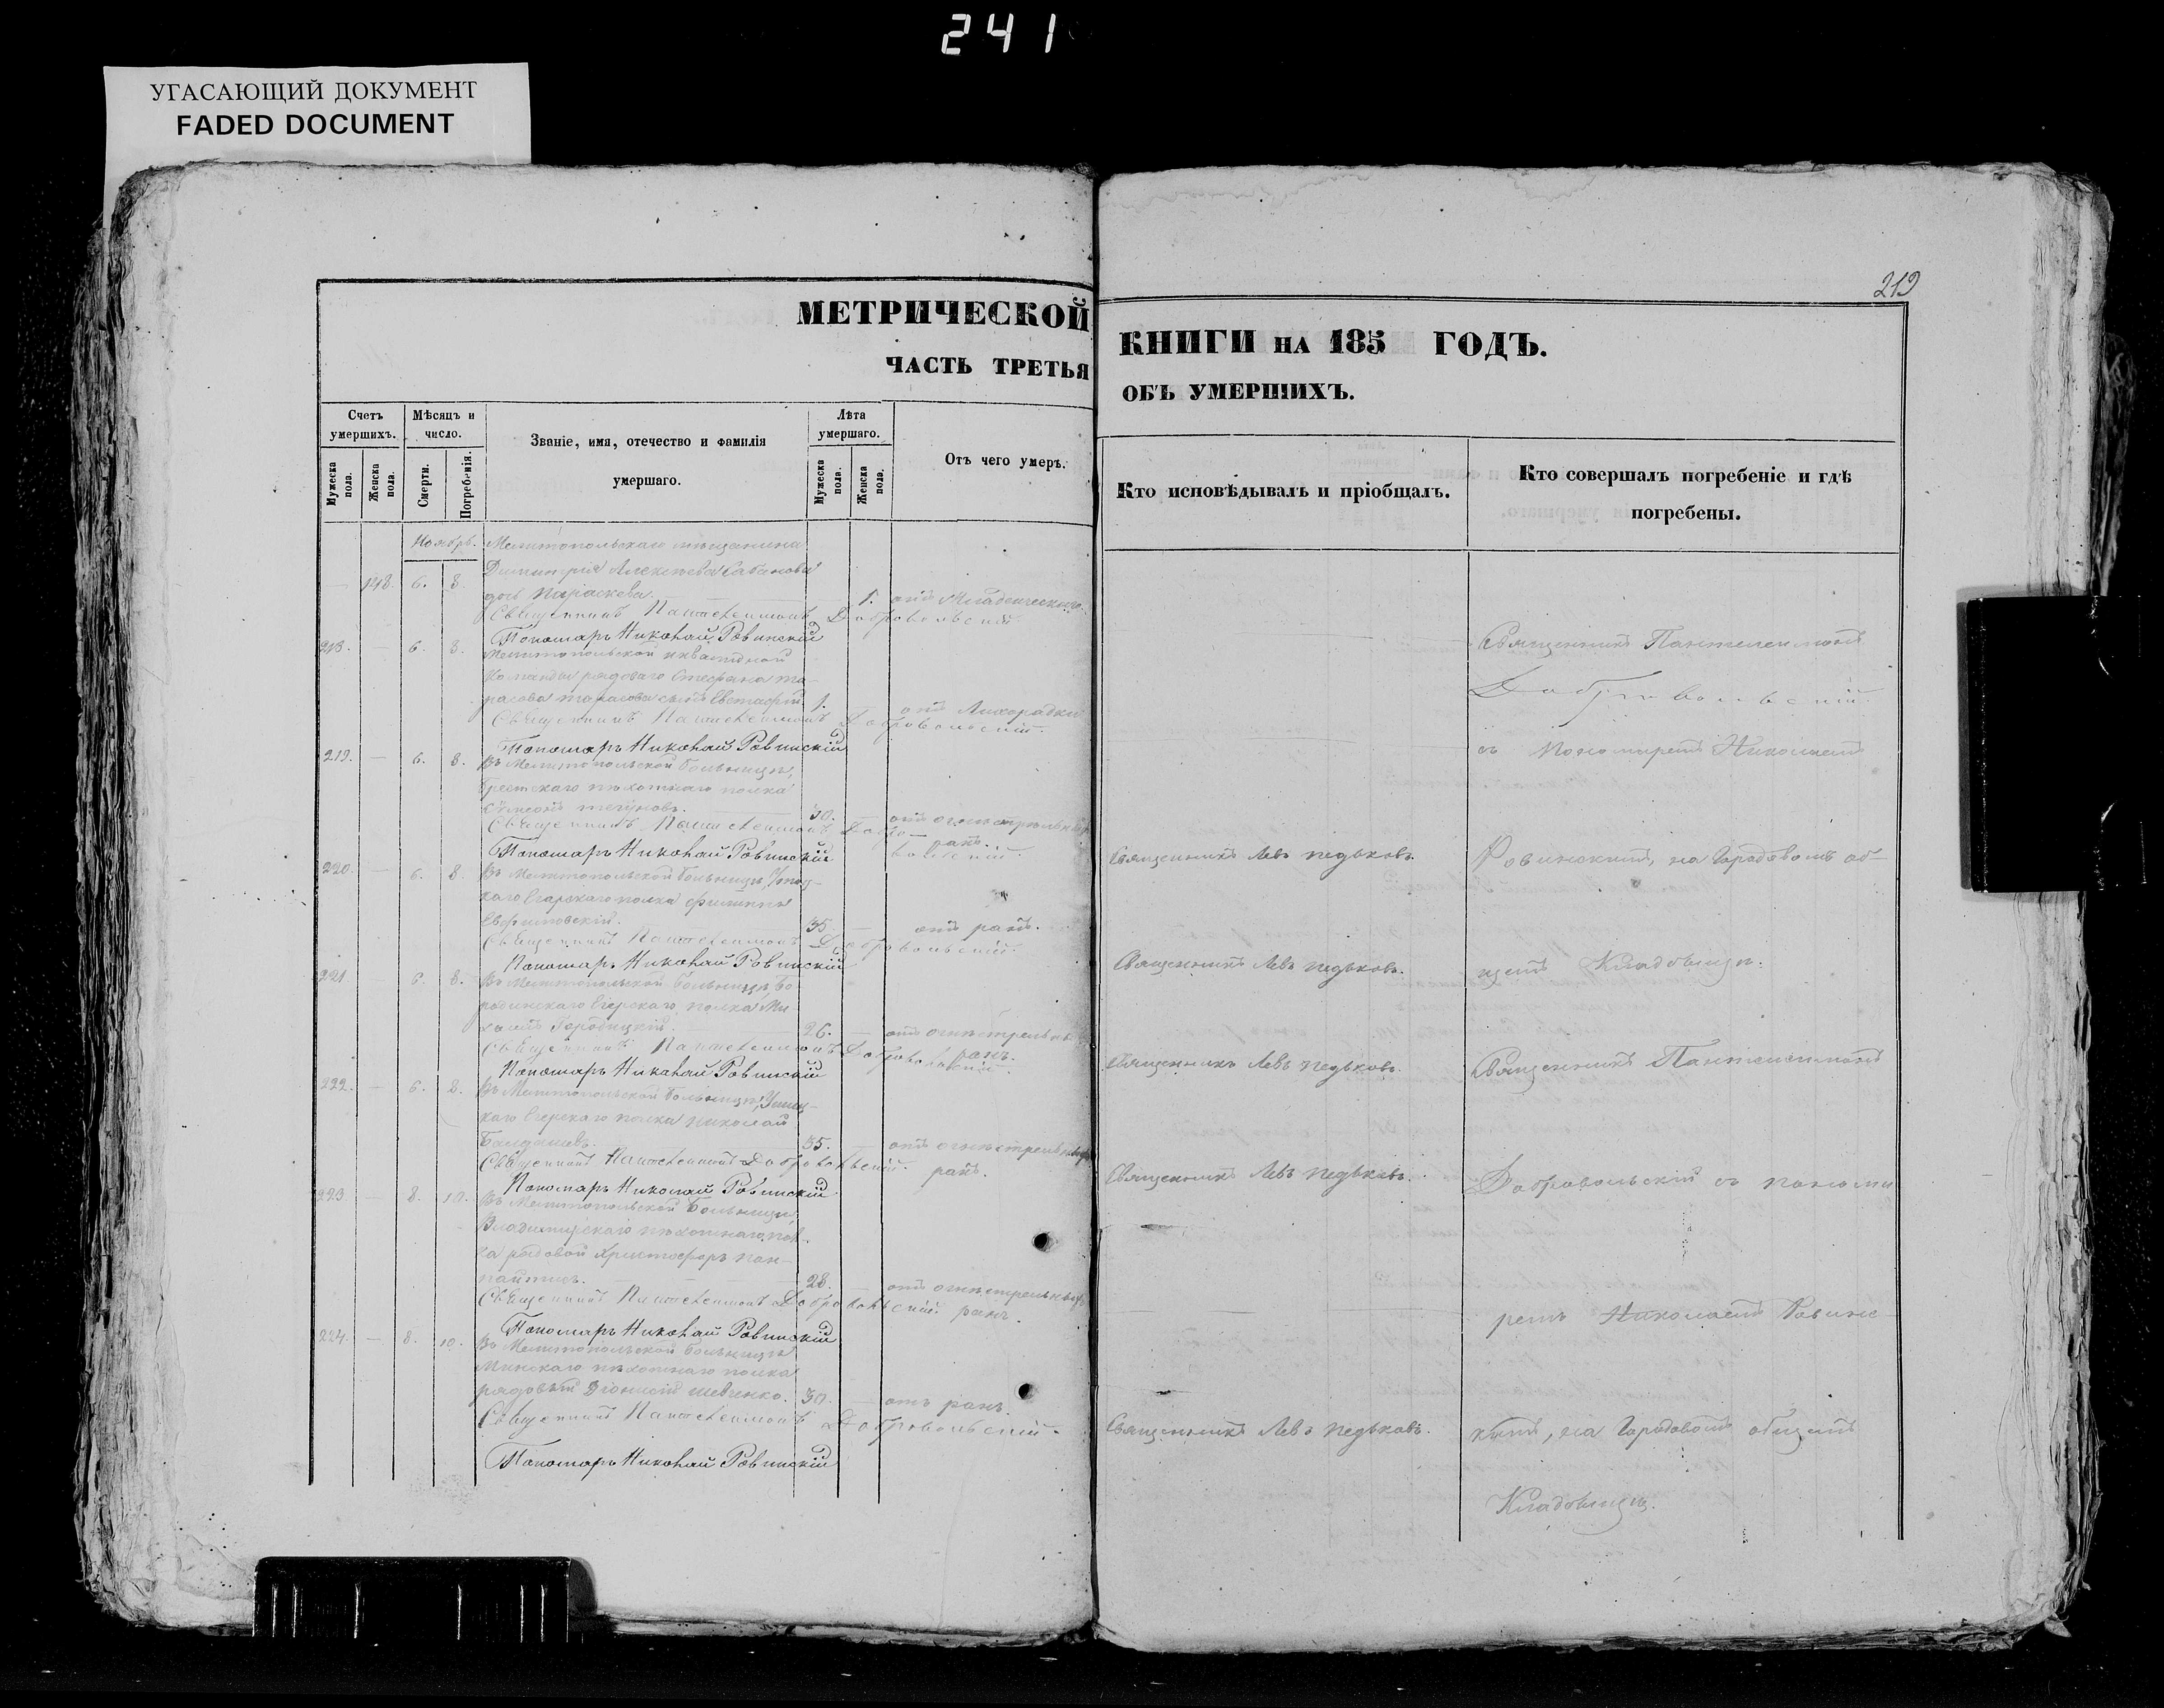 241
УГАСАЮЩИЙ ДОКУМЕНТ
FADED DOCUMENT
219
МЕТРИЧЕСКОЙ
ЧАСТЬ ТРЕТЬЯ
КНИГИ НА 185 ГОДЪ.
ОБЪ УМЕРШИХЪ.
Счетъ умершихъ.
Мужеска пола.
Женска пола.
Мѣсяцъ и число.
Смерти.
Погребенія.
Званіе, имя, отечество и фамилія
умершаго.
Лѣта умершаго.
Мужеска пола.
Женска пола.
Отъ чего умеръ.
Кто исповѣдывалъ и пріобщалъ.
Кто совершалъ погребеніе и гдѣ
погребены.
Ноябрь.
Мелитопольскаго мѣщанина
Димитрія Алексѣева
6. 8. дочь Параскева. 1. отъ Младенческаго
Священникъ Пантелеимонъ Добровольскій
Пономарь Николай Ровинскій
218. — 6. 8. Мелитопольской инвалидной
Команды рядоваго Стефана Та-
расова сынъ Евстафій 1. отъ Лихорадки
Священникъ Пантелеимонъ Добровольскій.
Пономарь Николай Ровинскій
219. — 6. 8. Въ Мелитопольской больницѣ,
Брестскаго пѣхотнаго полка
30. — отъ огнестрѣльныхъ
ранъ.
Священникъ Пантелеимонъ Добровольскій.
Пономарь Николай Ровинскій
220. — 6. 8. Въ Мелитопольской больницѣ,
каго Егерскаго полка Филиппъ
35 — отъ ранъ.
Священникъ Пантелеимонъ Добровольскій.
Пономарь Николай Ровинскій
221 — 6. 8. Въ Мелитопольской больницѣ Бо-
родинскаго Егерскаго полка Ми-
хаилъ 26. — отъ огнестрельныхъ
ранъ.
Священникъ Пантелеимонъ Добровольскій.
Пономарь Николай Ровинскій
222. — 6. 8. Въ Мелитопольской больницѣ,
каго Егерскаго полка Николай
35. — отъ огнестрельныхъ
ранъ.
Священникъ Пантелеимонъ Добровольскій.
Пономарь Николай Ровинскій
223. — 8. 10. Въ Мелитопольской Больницѣ,
Владимірскаго пѣхотнаго пол-
ка рядовой Христофоръ
28. — отъ огнестрельныхъ
ранъ.
Священникъ Пантелеимонъ Добровольскій
Пономарь Николай Ровинскій
224. — 8. 10. Въ Мелитопольской больницѣ
Минскаго пѣхотнаго полка
рядовый Діонисій Шевченко. 30. — отъ ранъ.
Священникъ Пантелеимонъ Добровольскій.
Пономарь Николай Ровинскій
Священникъ Левъ Педьковъ.
Священникъ Левъ Педьковъ.
Священникъ Левъ Педьковъ.
Священникъ Левъ Педьковъ.
Священникъ Левъ Педьковъ.
Священникъ Пантелеимонъ
Добровольскій
съ пономаремъ Николаемъ
Ровинскимъ, на Городовомъ об-
щемъ Кладбищѣ.
Священникъ Пантелеимонъ
Добровольскій съ понома
ремъ Николаемъ Ровинс
кимъ, на Городовомъ общемъ
Кладбищѣ.